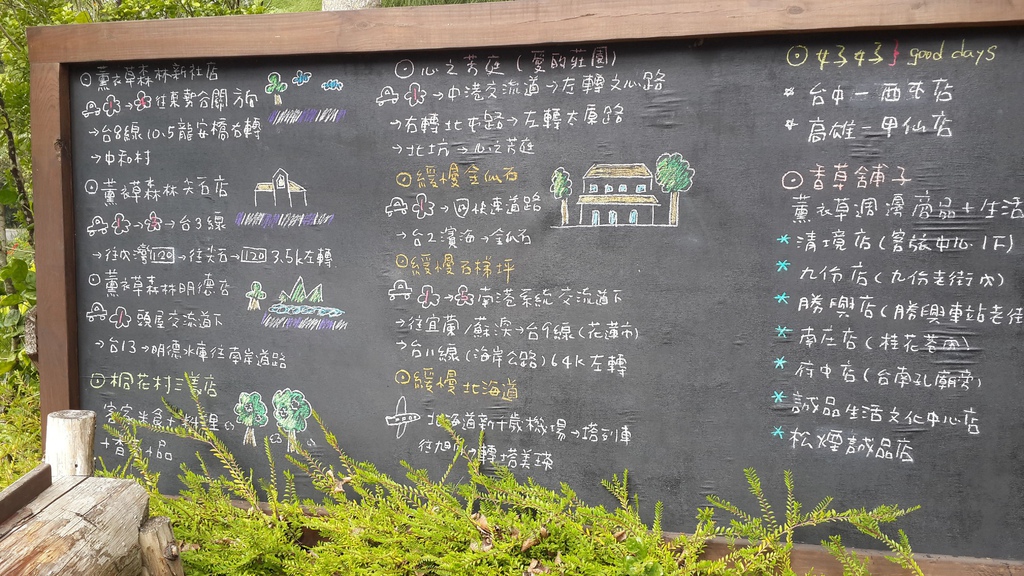 薰衣草森林新社店
→往東勢谷關方向
→台8線10.5龍安橋右轉
→中和村
薰衣草森林尖石店
→台3線
→往內灣120→往尖石→120 3.5k左轉
薰衣草森林明德店
頭屋交流道下
→台13→明德水庫往南岸道路
桐花村三義店
客家美食、料理
+香草小品
心之芳庭(愛的莊園)
→中港交流道→左轉文心路
→右轉北屯路→左轉太原路
→北坑→心之芳庭
緩慢金瓜石
→快速道路
→台2濱海→金瓜石
緩慢石梯坪
→南港系統交流道下
→往宜蘭/蘇澳→台9線(花蓮市)
→台11線(海岸公路)64K左轉
緩慢北海道
北海道新千歲機場→搭列車
往旭川→轉搭美瑛
好好 good days
* 台中-西屯店
* 高雄-甲仙店
香草舖子
薰衣草週邊商品+生活
* 清境店(賓館中心1F)
* 九份店(九份老街內)
* 勝興店(勝興車站老街
* 南庄店(桂花巷內)
* 府中店(台南孔廟旁)
* 誠品生活文化中心店
* 松煙誠品店